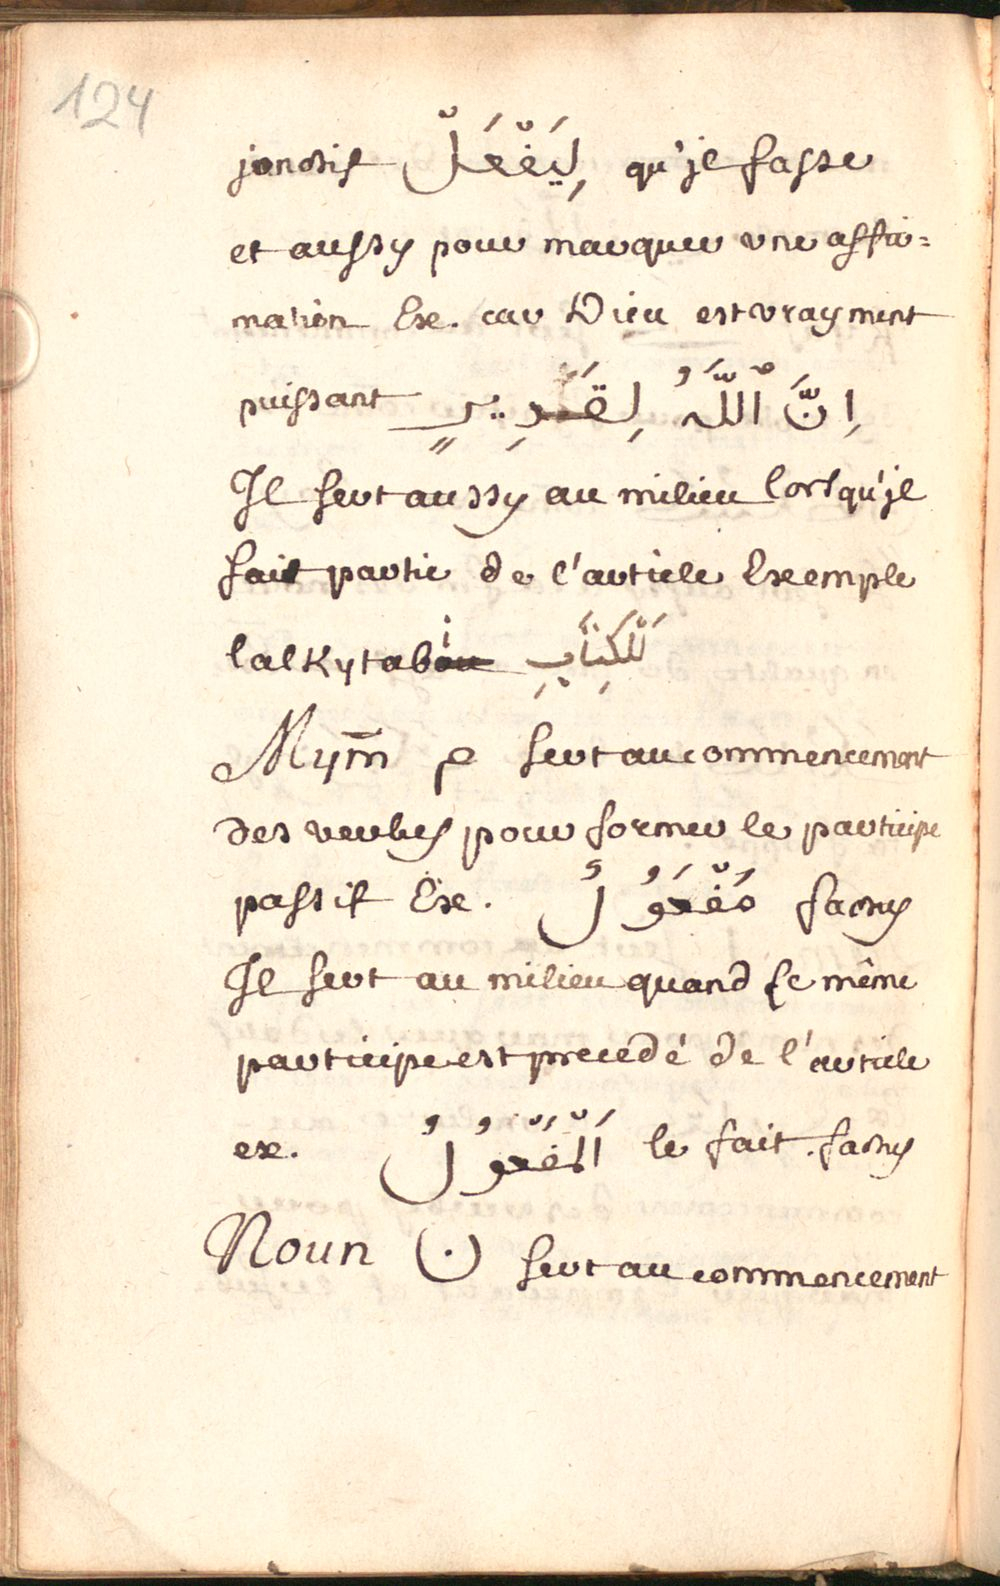 124
jonctif لِيَفْعَلْ qu'jl fasse
et aussy pour marquer vne affir=
mation Exe. car Dieu est vrayment
puissant اِنَّ ٱللَّهُ لِقَدِيرٍ
Jl sert aussy au milieu lorsqu'jl
fait partie de l'article Exemple
lalkytabi لَلْكِتَابِ
Mym م sert au commencement
des verbes pour former le participe
passif Exe. مَفْعَوُلٌ factus
Jl sert au milieu quand ce même
participe est precedé de l'article
ex. اَلْمَفْعوُلُ le fait. factus
Noun ن sert au commencement